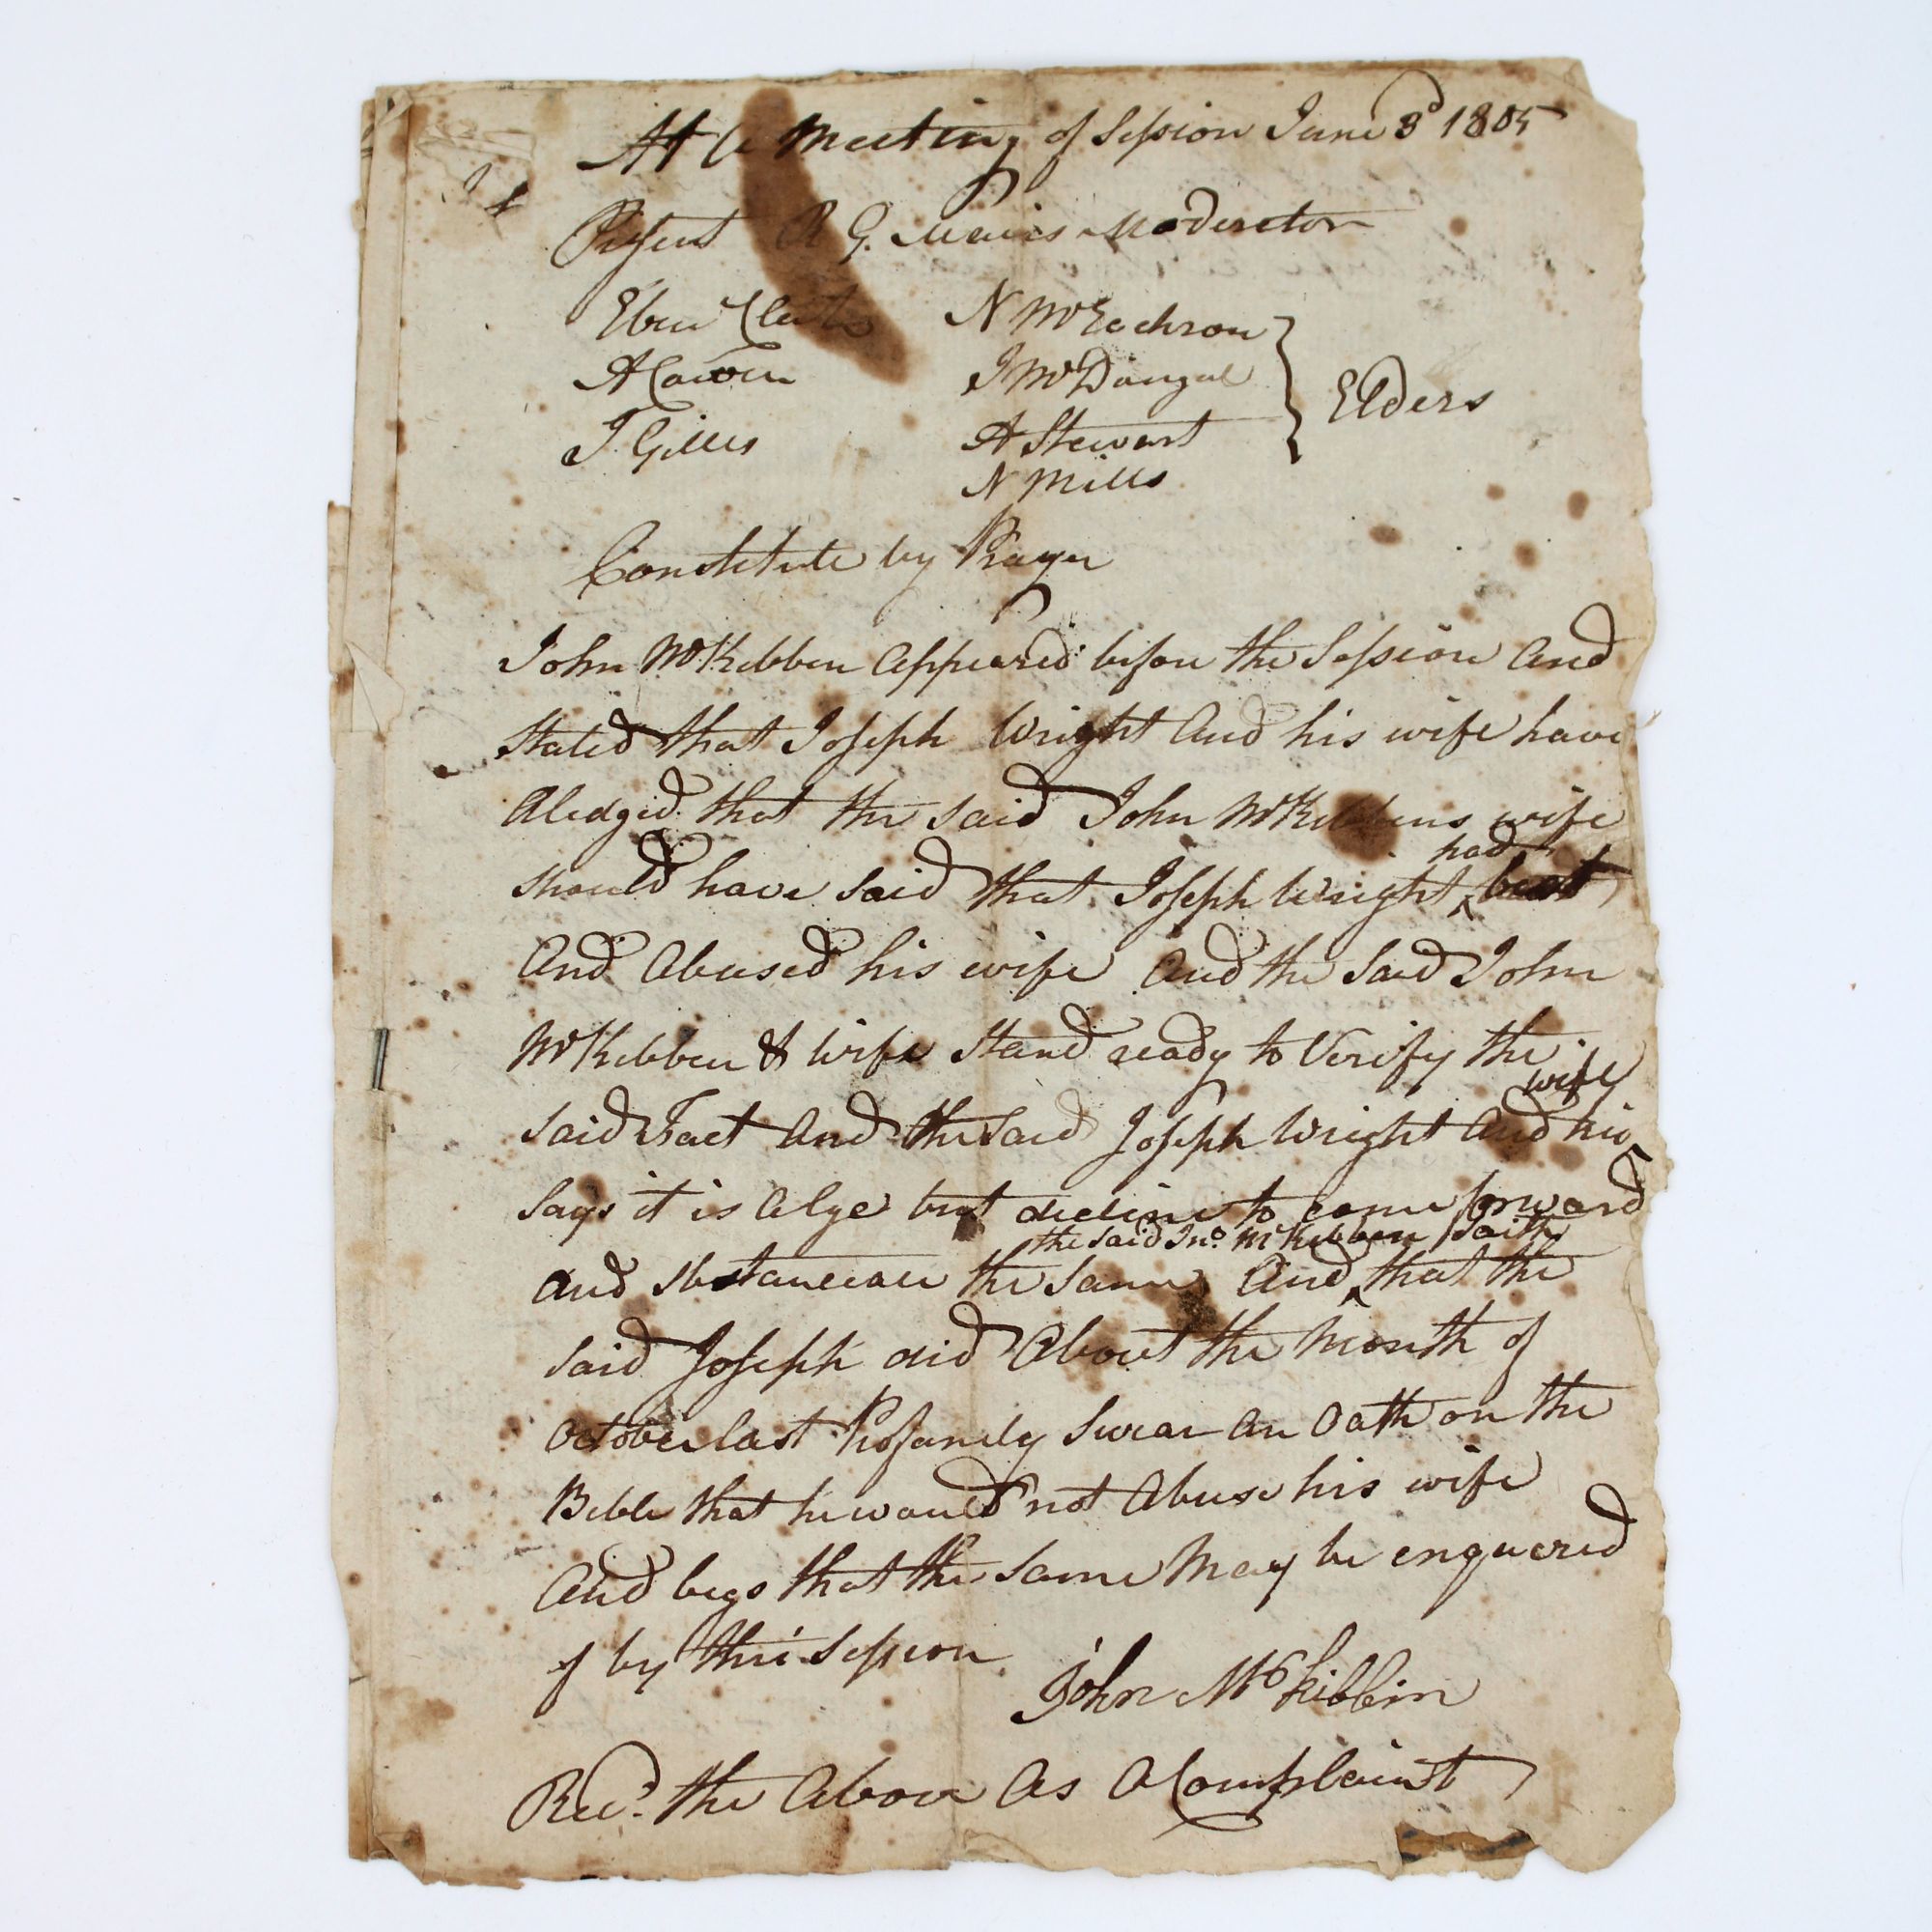 At a Meeting of Session June 3d 1805
Present R G. Mairs Moderator
Eben Clark N McEachron
A Cowen J McDougal Elders
J Gillis A Stewart
N Mills
Constitute by Prayer
John McKibben Appeared before the Session and
Stated that Joseph Wright and his wife have
Aledged that the said John McKibbens wife
should have said that Joseph Wright had beat
And Abused his wife And the Said John
McKibben & wife Stand ready to Verify the
said Fact And the Said Joseph Wright And his wife
Says it is a lye but decline to come forward
and the same And the said Jno. McKibben saith that the
said Joseph did About the Month of
October last Profanely Swear an Oath on the
Bible that he would not Abuse his wife
And begs that the same May be enquered
of by this Session
John McKibbin
Recd. the Above As a Complaint